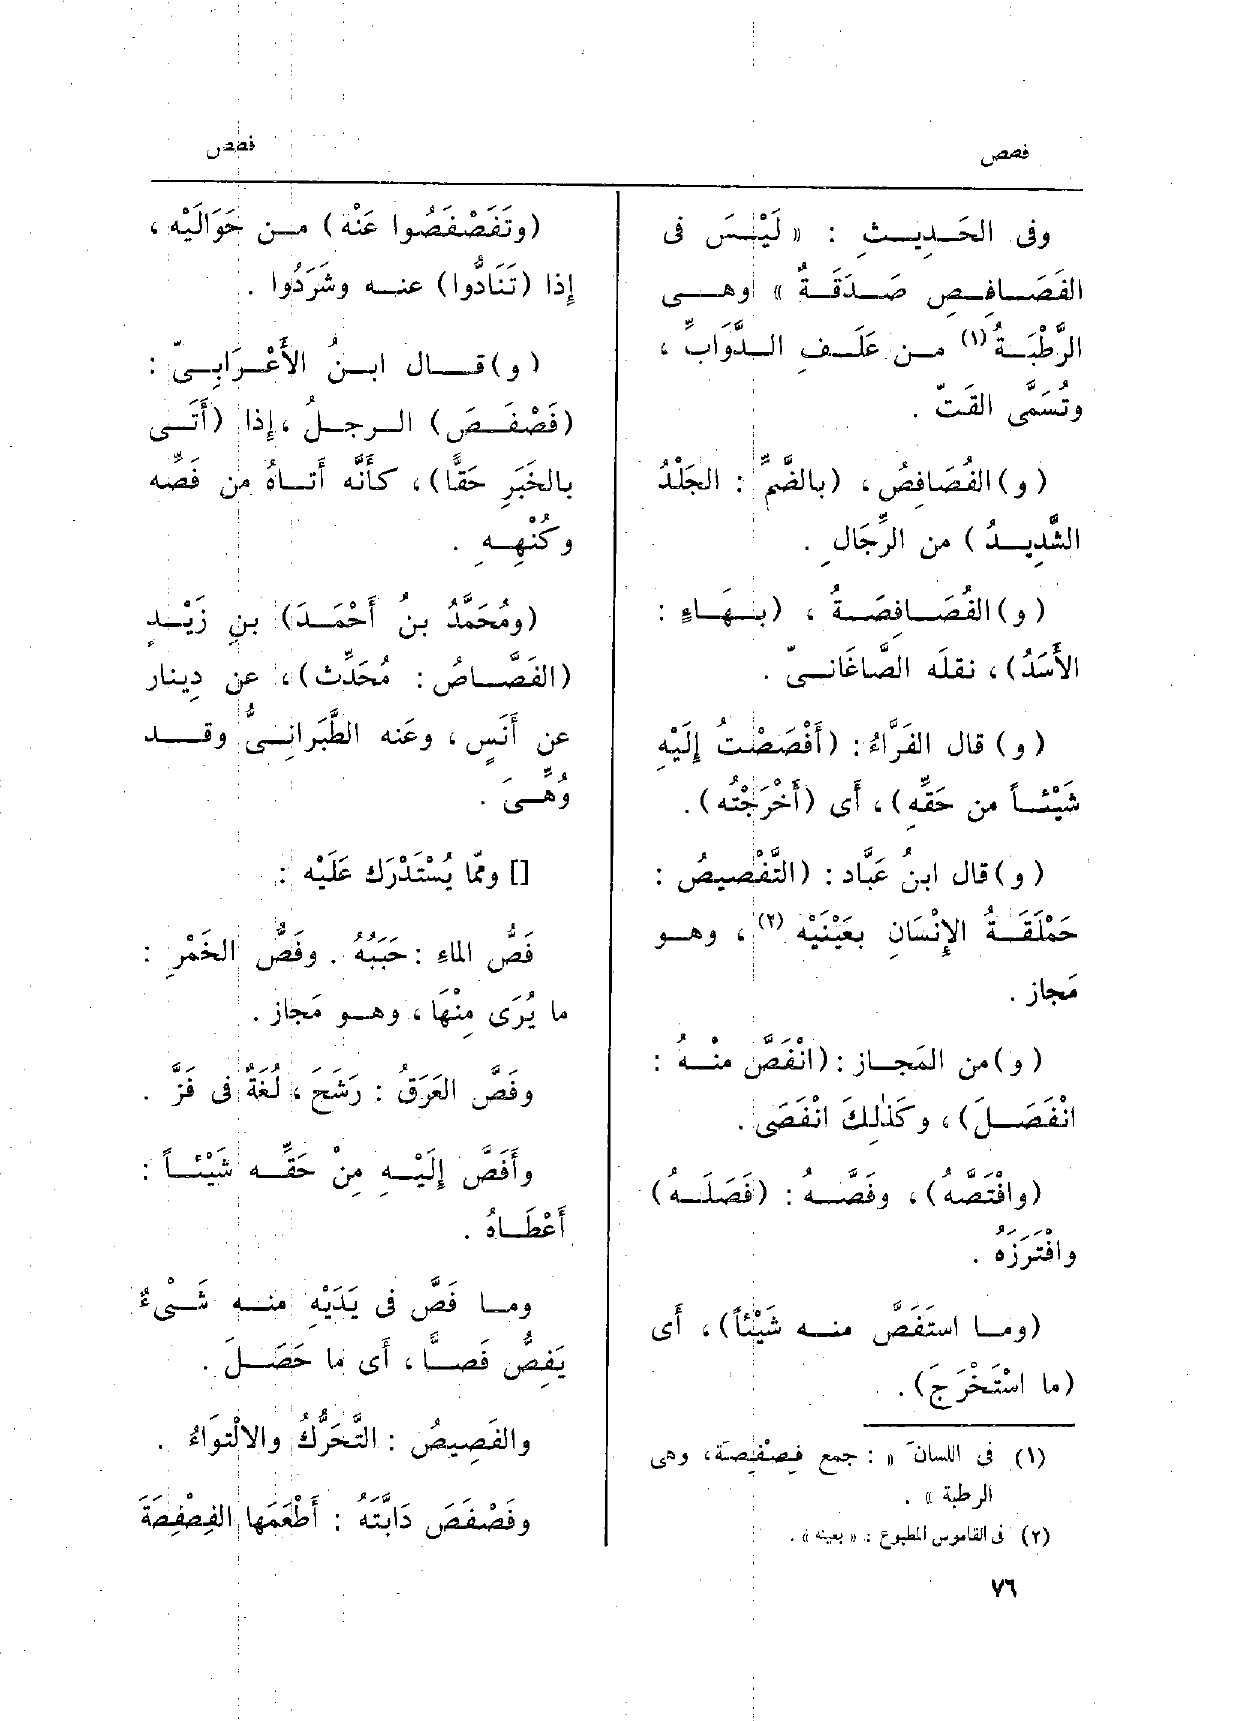 فصص
فصص
وفى الحَدِيثِ : « لَيْسَ فى
الفَصَافِصِ صَدَقَةٌ » وهى
الرَّطْبَةُ (١) من عَلَفِ الدَّوَابِّ ،
وتُسَمَّى القَتّ .
( و ) الفُصَافِصُ ، ( بالضَّمِّ : الجَلْدُ
الشَّدِيدُ ) من الرِّجَالِ .
( و ) الفُصَافِصَةُ ، ( بِهَاءٍ :
الأَسَدُ ) ، نقلَه الصَّاغَانىّ .
( و ) قال الفَرَّاءُ : ( أَفْصَصْتُ إِلَيْهِ
شَيْئاً من حَقِّهِ ) ، أَى ( أَخْرَجْتُه ) .
( و ) قال ابنُ عَبَّاد : ( التَّفْصِيصُ :
حَمْلَقَةُ الإِنْسَانِ بعَيْنَيْهِ (٢) ، وهو
مَجاز .
( و ) من المَجاز : ( انْفَصَّ منْهُ :
انْفَصَلَ ) ، وكَذٰلِكَ انْفَصَى .
( وافْتَصَّهُ ) ، وفَصَّهُ : ( فَصَلَهُ )
وافْتَرَزَهُ .
( وما استَفَصَّ منه شَيْئاً ) ، أَى
( ما اسْتَخْرَجَ ) .
(١) فى اللسان « : جمع فِصْفِصَة، وهى
الرطبة » .
(٢) فى القاموس المطبوع : « بعينه » .
٧٦
( وتَفَصْفَصُوا عَنْه ) من حَوَالَيْه ،
إِذا ( تَنَادُّوا ) عنه وشَرَدُوا .
( و ) قال ابنُ الأَعْرَابِىّ :
( فَصْفَصَ ) الرجلُ ، إِذا ( أَتَى
بالخَبَرِ حَقًّا ) ، كأَنَّه أَتاهُ من فَصِّه
وكُنْهِهِ .
( ومُحَمَّدُ بنُ أَحْمَدَ ) بنِ زَيْدٍ
( الفَصَّاصُ : مُحَدِّث ) ، عن دِينار
عن أَنَسٍ ، وعَنه الطَّبَرانِىُّ وقد
وُهِّىَ .
[] وممّا يُسْتَدْرَك عَلَيْه :
فَصُّ الماءِ : حَبَبُهُ . وفَصُّ الخَمْرِ :
ما يُرَى مِنْهَا ، وهو مَجاز .
وفَصَّ العَرَقُ : رَشَحَ ، لُغَةٌ فى فَزَّ .
وأَفَصَّ إِلَيْهِ مِنْ حَقِّه شَيْئاً :
أَعْطَاهُ .
وما فَصَّ فى يَدَيْهِ منه شَىْءٌ
يَفِصُّ فَصًّا ، أَى ما حَصَلَ .
والفَصِيصُ : التَّحَرُّكُ والالْتِوَاءُ .
وفَصْفَصَ دَابَّتَهُ : أَطْعَمَها الفِصْفِصَةَ